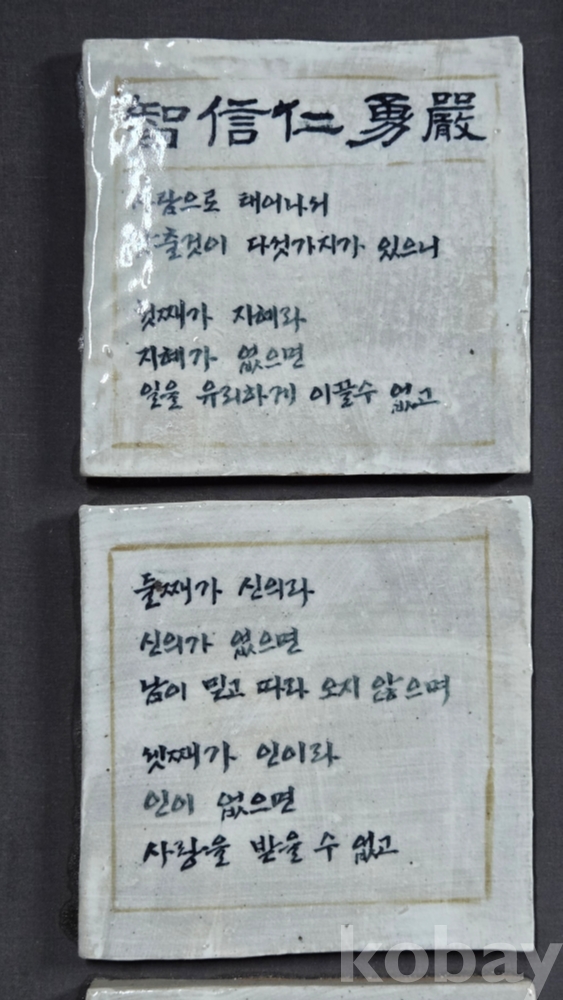 智信仁勇嚴
사람으로 태어나서
갖출것이 다섯가지가 있으니
첫째가 지혜라
지혜가 없으면
일을 유리하게 이끌수 없고
둘째가 신의라
신의가 없으면
남이 믿고 따라 오지 않으며
셋째가 인이라
인이 없으면
사랑을 받을 수 없고
kobay